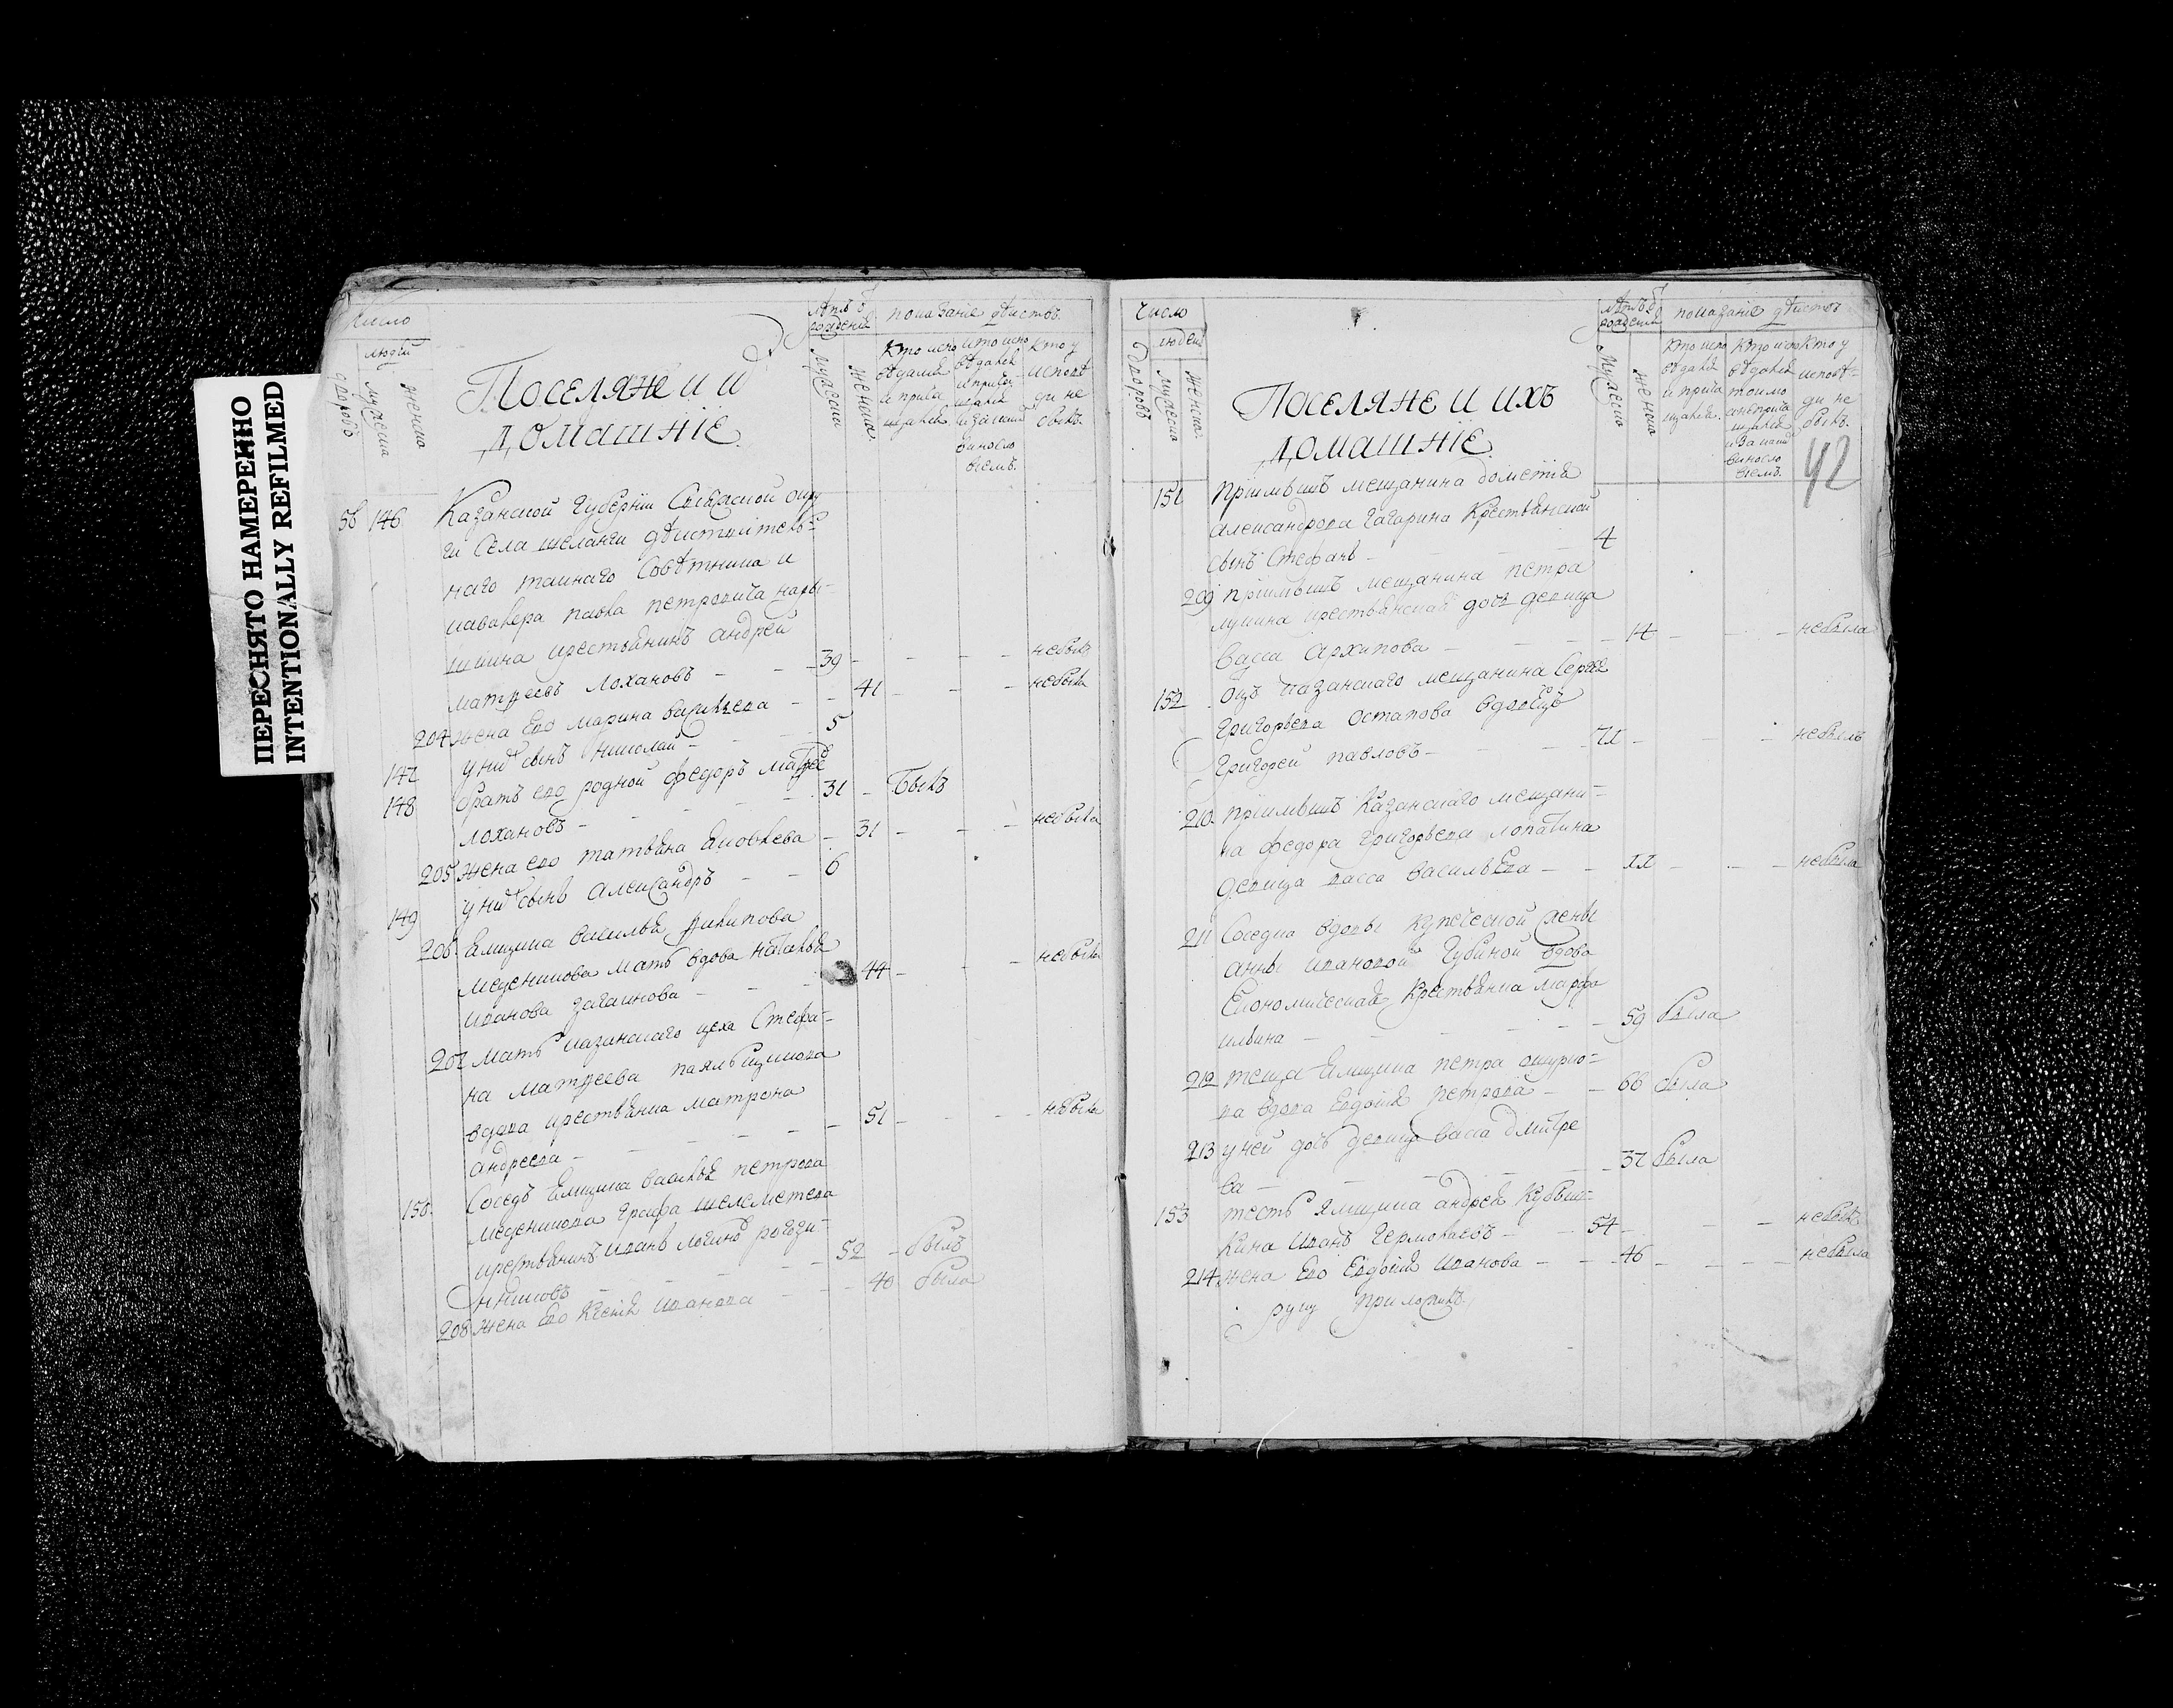 ПЕРЕСНЯТО НАМЕРЕННО
INTENTIONALLY REFILMED
число
людей
дворовъ
мужеска
женска
Поселяне и и
домашніе
лѣтъ ѿ рожденія
мужеска
женска
показаніе дѣиствъ
кто исповѣдался и приобщался
кто у исповѣди не былъ
56 146 Казанской Губерніи Свіяжской окру
ги Села шеланги дѣиствителъ=
наго таинаго Совѣтника и
кавалера павла петровича нары=
шкина крестьянинъ андрей
матѳеевъ Лохановъ 39 небылъ
204 жена Его марина василъева 41 небыла
147 у нихъ сынъ николай 5
148 братъ его родной федоръ матѳее
Лохановъ 31 былъ
205 жена его татьяна Яковлева 31 небыла
149 у нихъ сынъ александръ 6
206 Ямщика василья филипова
меденикова мать вдова наталья
иванова загаинова 44 небыла
207 мать казанскаго цеха Стефа=
на матѳеева паялъщикова
вдова крестьянка матрона
андреева 51 небыла
150 Соседъ Ямщика василья петрова
меденикова графа шелеметева
крестьянинъ иванъ логинъ рогожи=
нниковъ 52 былъ
208 жена Его Ксенія иванова 40 была
число
людей
дворовъ
мужеска
женска
Поселяне и ихъ
домашніе
лѣтъ ѿ рожденія
мужеска
женска
показаніе дѣиствъ
кто исповѣдался и приобщался
кто у исповѣди не былъ
42
151 пріимышъ мещанина дометія
александрова гагарина Крестьянской
сынъ Стефанъ 4
209 пріимышъ мещанина петра
лукина крестьянская дочь девица
васса архипова 14 небыла
152 оцъ казанскаго мещанина Сергея
григорьева остапова вдовецъ
григорей павловъ 71 небылъ
210 пріимышъ Казанскаго мещани=
на федора григорьева лопатина
девица васса василъева небыла
211 Соседка вдовы купеческой жены
анны ивановой губиной вдова
Економическая крестьянка марфа
илъина 59 была
212 теща Ямщика петра
ва вдова Евдокія петрова 66 была
213 у ней дочь девица васса дмитре
ва 37 была
153 тесть Ямщика андрея Кубыш=
кина иванъ Ермолаевъ 54 небылъ
214 жена Его Евдокія иванова 46 небыла
руку приложилъ